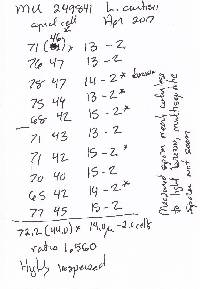 MCU 249841 L. curtisii
apical cell Apr 2017
71 (46)* 13 - 2
76 47 13 - 2
78 47 14 - 2* brown
75 44 13 - 2*
68 42 15 - 2*
71 43 13 - 2
71 42 15 - 2*
70 40 15 - 2
65 42 14 - 2*
77 45 15 - 2
72.2 (44.0)* 14.4µ - 2 cells
ratio 1.560
Highly inspersed
Measured spores mostly colorless
to light brown, multiseptate
spores not seen